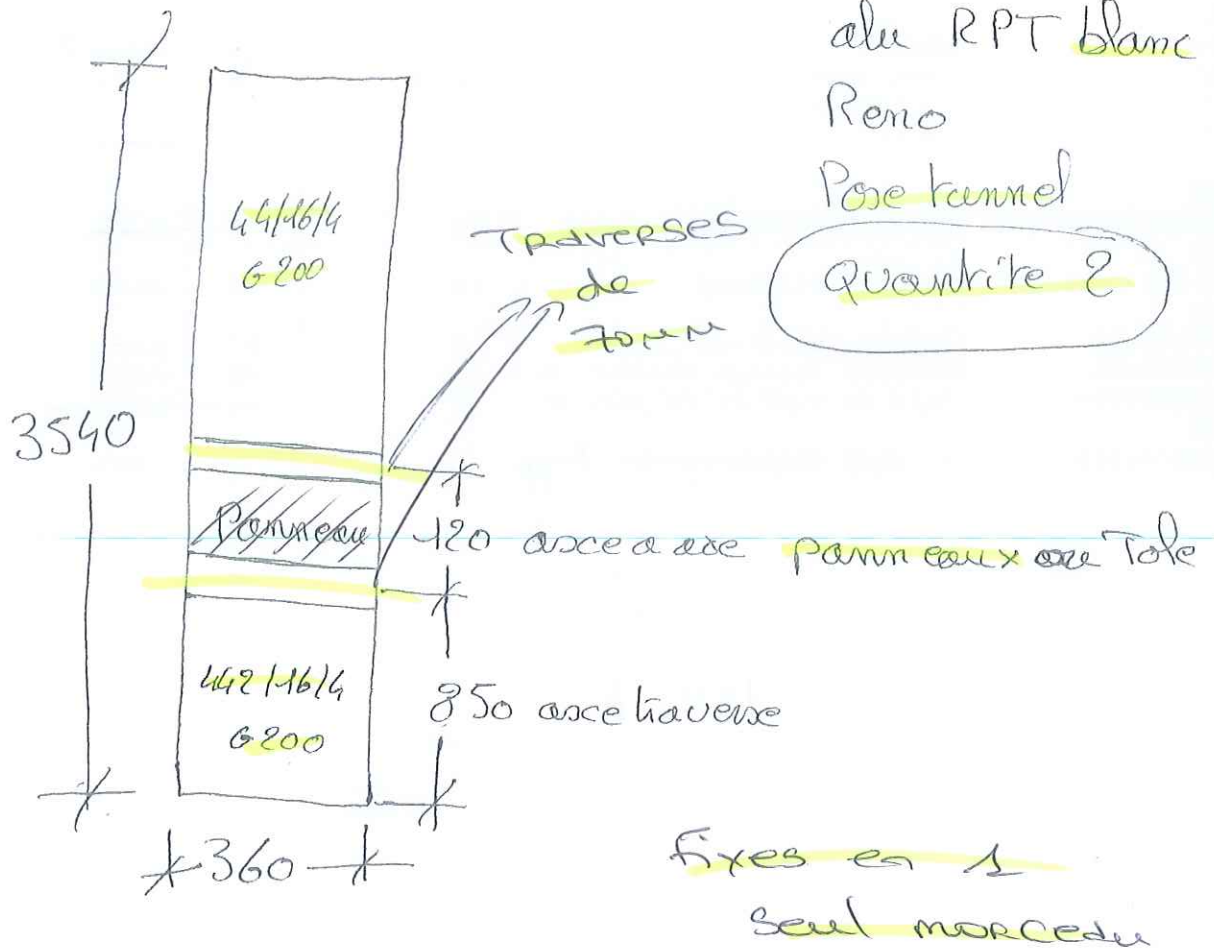 alu RPT blanc
Reno
Pose tunnel
Quantite 2
44/16/4
G200
TRAVERSES
de
70mm
3540
Panneau
120 axe a axe panneaux ou Tole
442/16/4
G200
850 axe traverse
360
fixes en 1
seul morceau